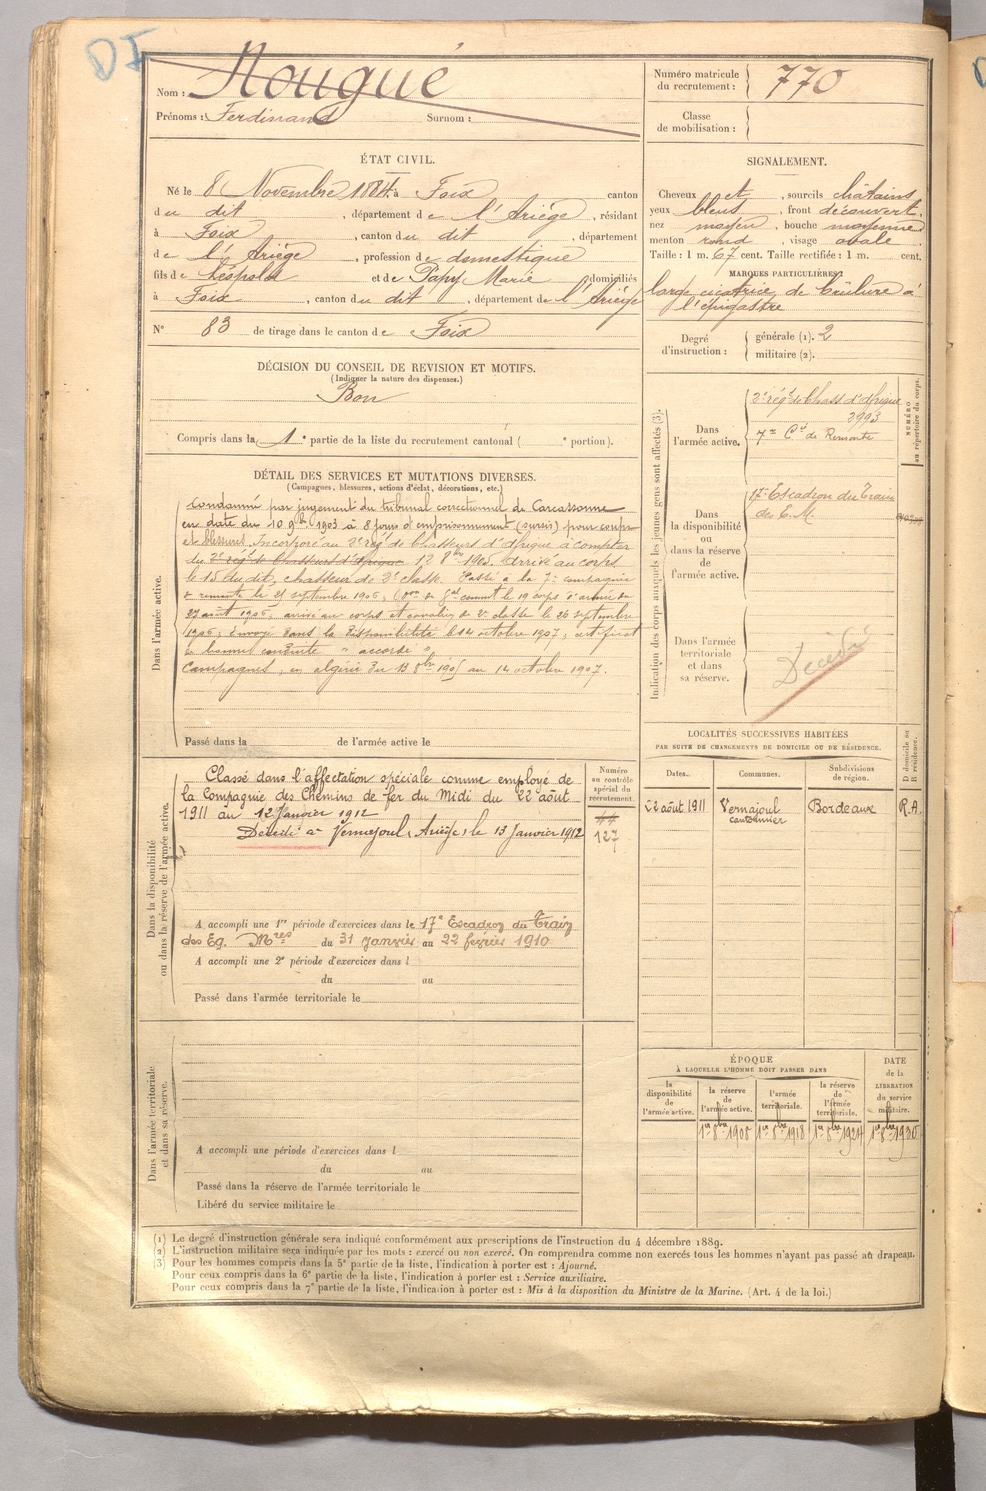 DI
Nom : Nougué
Prénoms : Ferdinand Surnom :
Numéro matricule du recrutement : 770
Classe de mobilisation :
ÉTAT CIVIL.
Né le 8 Novembre 1884 à Foix canton
du dit, département de l'Ariège, résidant
à Foix, canton du dit, département
de l'Ariège, profession de domestique
fils de Léopold et de Papy Marie domiciliés
à Foix, canton du dit, département de l'Ariège
N° 83 de tirage dans le canton de Foix
SIGNALEMENT.
Cheveux et, sourcils châtains
yeux bleus, front découvert,
nez moyen, bouche moyenne
menton rond, visage ovale
Taille : 1 m. 67 cent. Taille rectifiée : 1 m. cent.
MARQUES PARTICULIÈRES :
large cicatrice de brûlure à
l'épigastre
Degré d'instruction : générale (1). 2
militaire (2).
DÉCISION DU CONSEIL DE REVISION ET MOTIFS.
(Indiquer la nature des dispenses.)
Bon
Compris dans la 1e partie de la liste du recrutement cantonal ( e portion).
DÉTAIL DES SERVICES ET MUTATIONS DIVERSES.
(Campagnes, blessures, actions d'éclat, décorations, etc.)
Dans l'armée active.
Condamné par jugement du tribunal correctionnel de Carcassonne
en date du 10 9bre 1903 à 8 jours d'emprisonnement (sursis) pour coups
et blessures. Incorporé au 2e rég de Chasseurs d'Afrique à compter
du 2e rég de Chasseurs d'Afrique 12 8bre 1905, arrivé au corps
le 15 du dit, chasseur de 2e classe. Passé à la 7e compagnie
de remonte le 21 septembre 1906, le 19 corps d'armée du
27 août 1906, arrivé au corps et cavalier de 2e classe le 26 septembre
1906; Envoyé dans la disponibilité le 14 octobre 1907; certificat
de bonne conduite " accordé "
Campagnes : en algérie du 13 8bre 1905 au 14 octobre 1907.
Passé dans la de l'armée active le
Indication des corps auxquels les jeunes gens sont affectés (3).
NUMÉRO au répertoire du corps.
Dans l'armée active.
2e rég de Chass d'Afrique
3993
7me Cie de Remonte
Dans la disponibilité ou dans la réserve de l'armée active.
17e Escadron du Train
des E. M.
Dans l'armée territoriale et dans sa réserve.
Décédé
LOCALITÉS SUCCESSIVES HABITÉES
PAR SUITE DE CHANGEMENTS DE DOMICILE OU DE RÉSIDENCE.
Dates. Communes. Subdivisions de région. D domicile ou R résidence.
22 août 1911 Vernajoul Bordeaux R.A.
cantonnier
Dans la disponibilité ou dans la réserve de l'armée active.
Numéro au contrôle spécial du recrutement.
44
127
Classé dans l'affectation spéciale comme employé de
la Compagnie des Chemins de fer du Midi du 22 août
1911 au 12 Janvier 1912
Décédé à Vernajoul, Ariège, le 13 Janvier 1912
A accompli une 1re période d'exercices dans le 17e Escadron du Train
des Eq. Mres du 31 janvier au 22 février 1910
A accompli une 2e période d'exercices dans l
du au
Passé dans l'armée territoriale le
Dans l'armée territoriale et dans sa réserve.
A accompli une période d'exercices dans l
du au
Passé dans la réserve de l'armée territoriale le
Libéré du service militaire le
ÉPOQUE
À LAQUELLE L'HOMME DOIT PASSER DANS
DATE de la LIBÉRATION du service militaire.
la disponibilité de l'armée active.
la réserve de l'armée active.
l'armée territoriale.
la réserve de l'armée territoriale.
1er 8bre 1908 1er 8bre 1918 1er 8bre 1924 1er 8bre 1930
(1) Le degré d'instruction générale sera indiqué conformément aux prescriptions de l'instruction du 4 décembre 1889.
(2) L'instruction militaire sera indiquée par les mots : exercé ou non exercé. On comprendra comme non exercés tous les hommes n'ayant pas passé au drapeau.
(3) Pour les hommes compris dans la 5e partie de la liste, l'indication à porter est : Ajourné.
Pour ceux compris dans la 6e partie de la liste, l'indication à porter est : Service auxiliaire.
Pour ceux compris dans la 7e partie de la liste, l'indication à porter est : Mis à la disposition du Ministre de la Marine. (Art. 4 de la loi.)